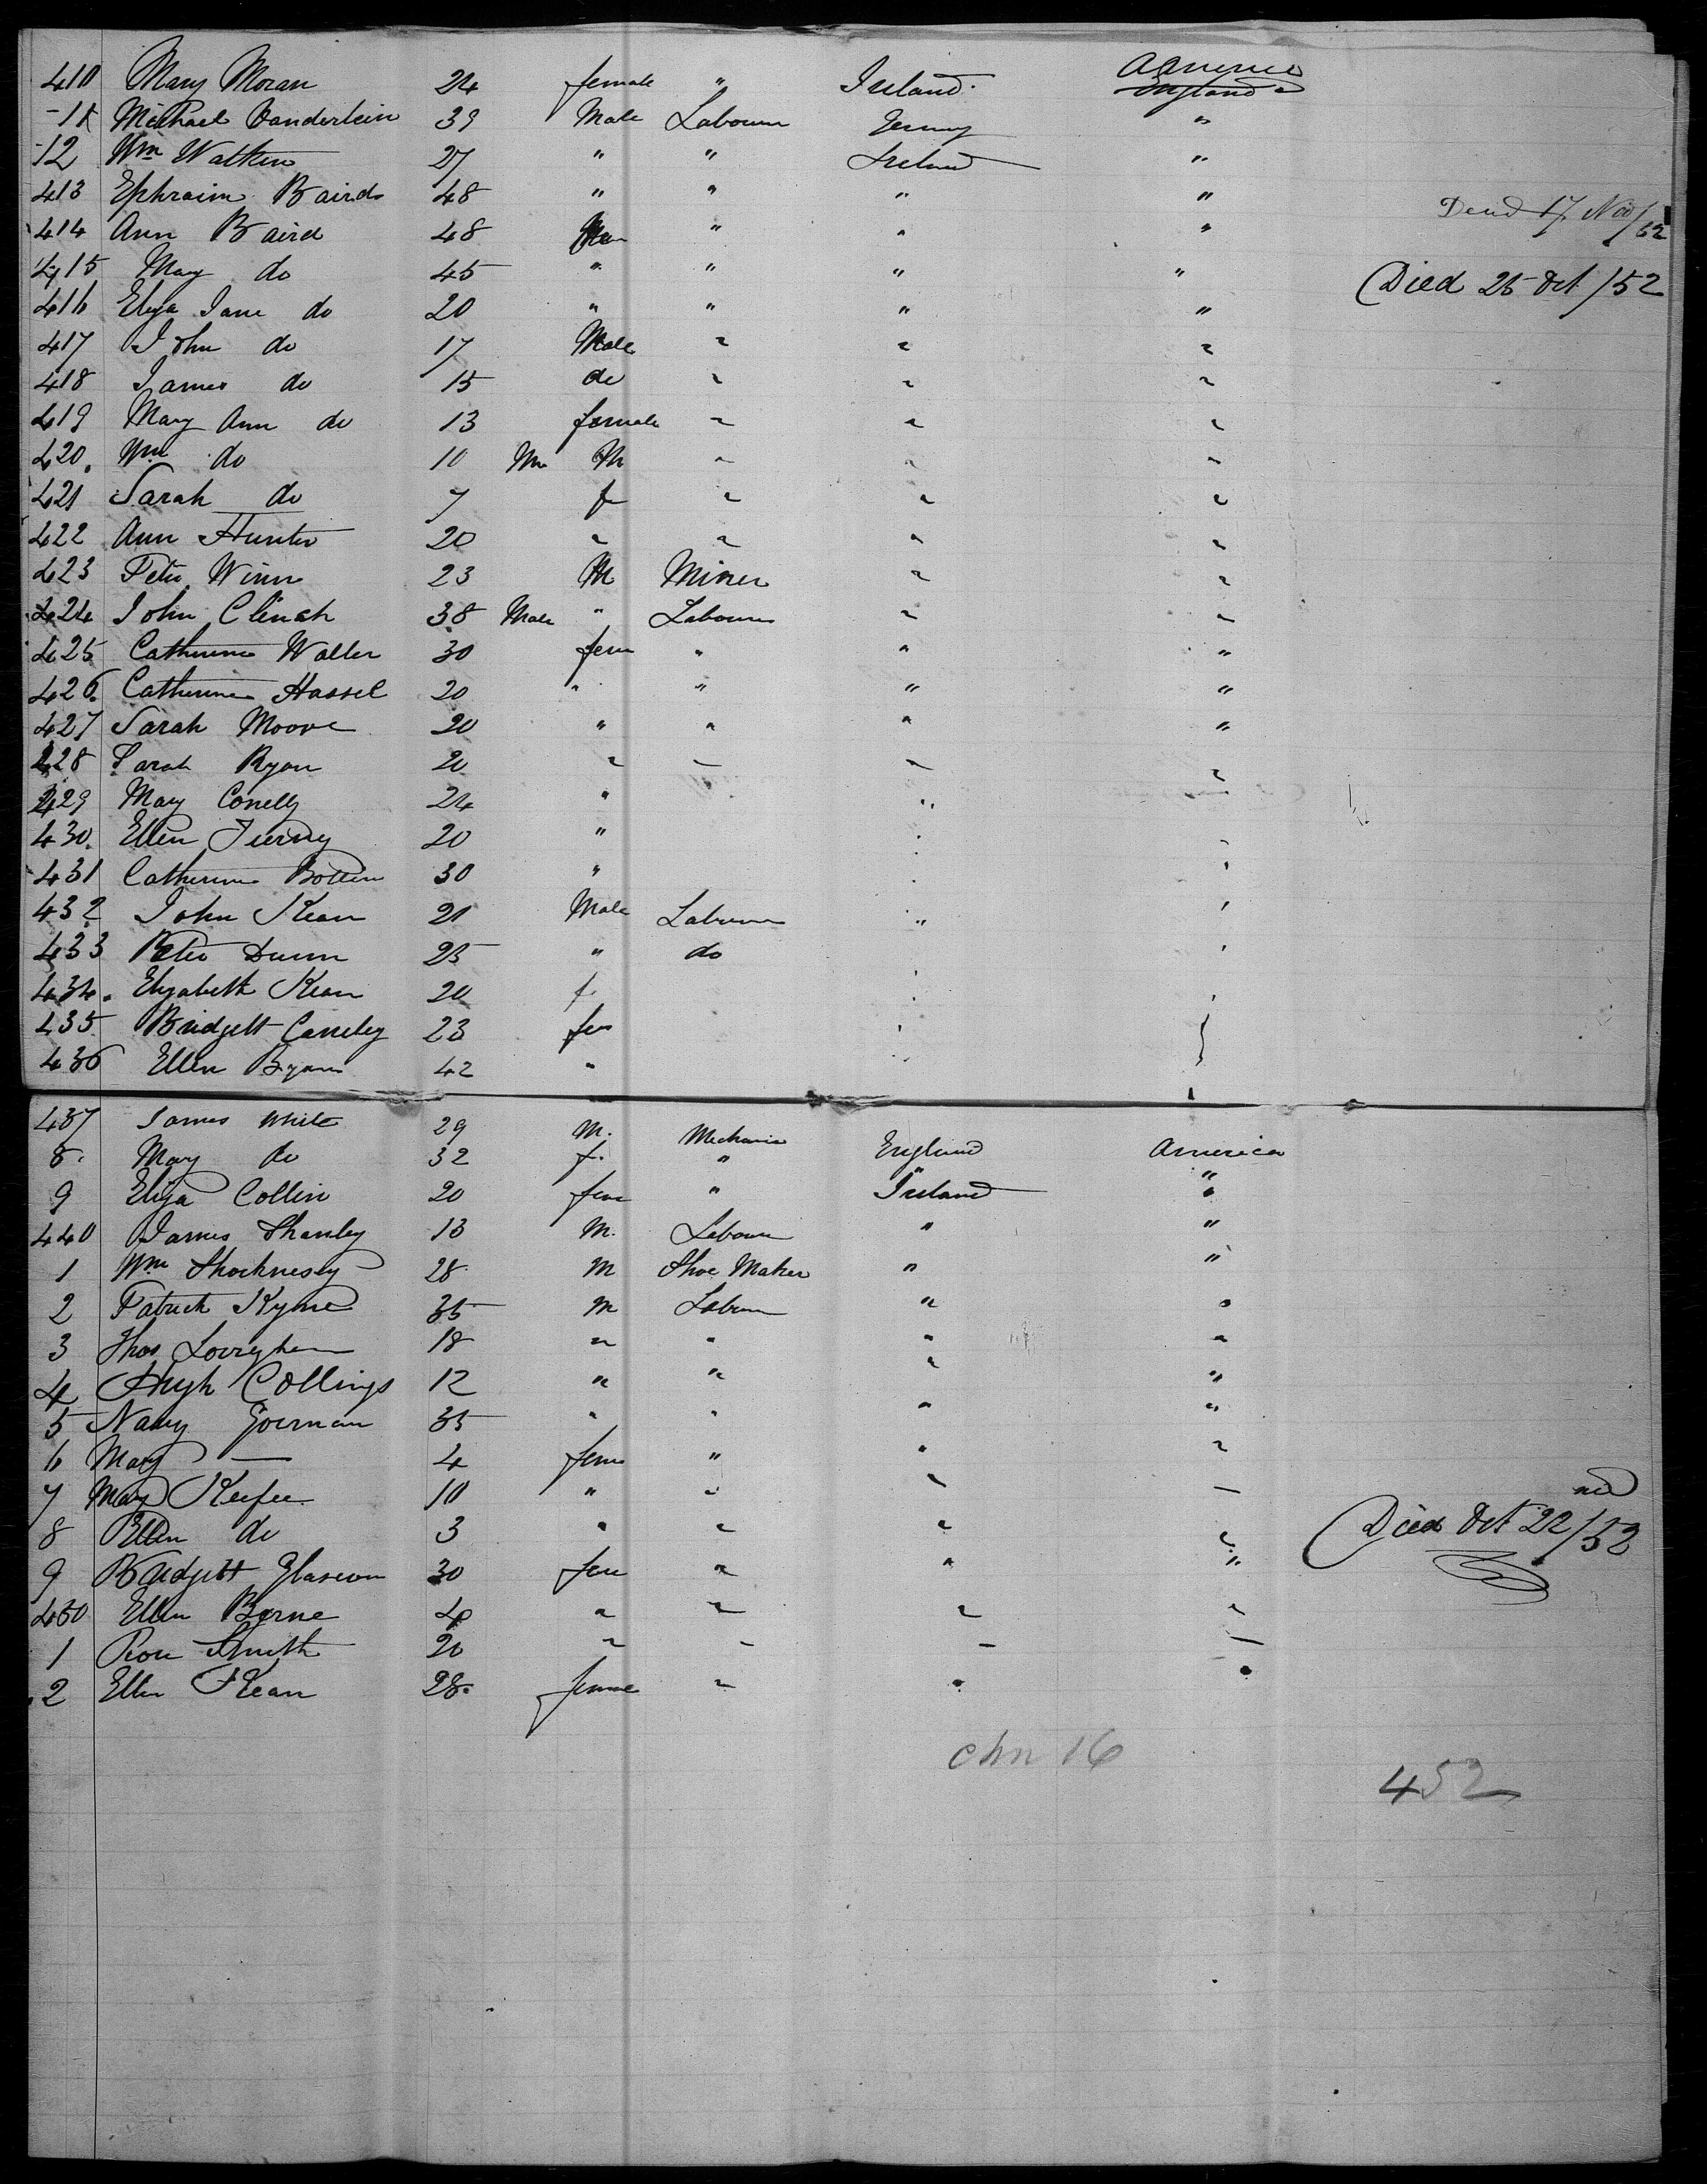 410 Mary Moran 24 female " Ireland. America England
-11 Michael Vanderlein 39 Male Labourer Germy "
-12 Wm Watkins 27 " " Ireland "
413 Ephraim Bairds 48 " " " " Dead 17 Nov/52
414 Ann Baird 48 " " "
415 Mary do 45 " " " " Died 25 Oct/52
416 Eliza Jane do 20 " " " "
417 John do 17 Male " " "
418 James do 15 do " " "
419 Mary Ann do 13 female " " "
420. Wm do 10 M M " " "
421 Sarah do 7 f " " "
422 Ann Hunter 20 " " " "
423 Peter Winn 23 M Miner " "
424 John Clinch 38 Male " Labourer " "
425 Catherine Waller 30 fem " " "
426. Catherine Hassel 20 " " " "
427 Sarah Moore 20 " " " "
428 Sarah Ryan 20 " " " "
429 Mary Conelly 24 " "
430. Ellen Tierney 20 "
431 Catherine Bollen 30 "
432 John Kean 21 Male Labourer "
433 Peter Dunn 25 " do
434. Elizabeth Kean 20 f
435 Bridgett Caneley 23 fem
436 Ellen Byrne 42 "
437 James White 29 M. Mechanic England America
8. Mary do 32 f. " " "
9 Eliza Collin 20 fem " Ireland "
440 James Shanley 13 M. Labourer " "
1 Wm Shocknesey 28 M Shoe Maker " "
2 Patrick Kyne 35 M Labourer " "
3 Thos 18 " " " "
4 Hugh Collings 12 " " " "
5 Nancy Gorman 35 " " " "
6 Mary — 4 fem " " "
7 Mary Keefee 10 " " " —
8 Ellen do 3 " " " " Died Oct 22nd/52
9 Bridgett 30 fem " " "
450 Ellen Borne 4 " " " "
1 Rose Smith 20 " " – —
2 Ellen Kean 28. female " " "
chn 16
452